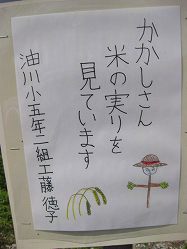 かかしさん
米の実りを
見ています
油川小五年二組工藤徳子